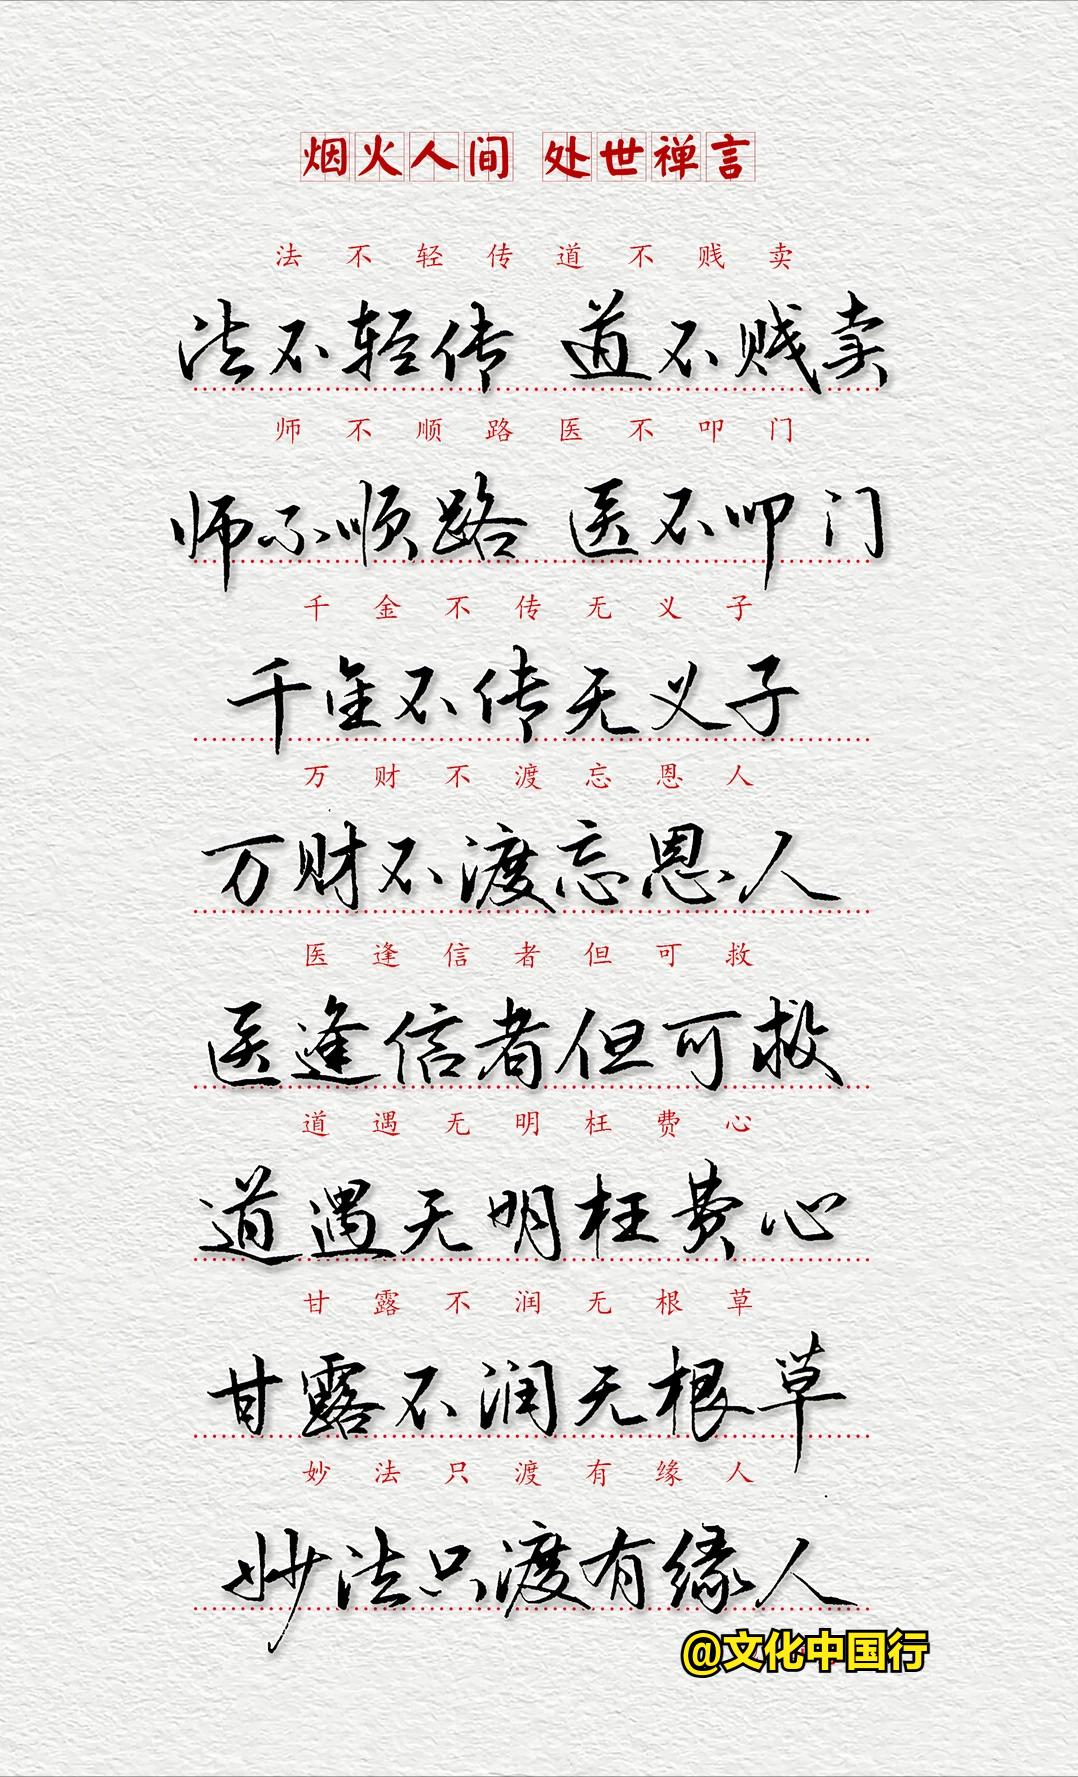 烟火人间 处世禅言
法不轻传道不贱卖
法不轻传 道不贱卖
师不顺路医不叩门
师不顺路 医不叩门
千金不传无义子
千金不传无义子
万财不渡忘恩人
万财不渡忘恩人
医逢信者但可救
医逢信者但可救
道遇无明枉费心
道遇无明枉费心
甘露不润无根草
甘露不润无根草
妙法只渡有缘人
妙法只渡有缘人
@文化中国行